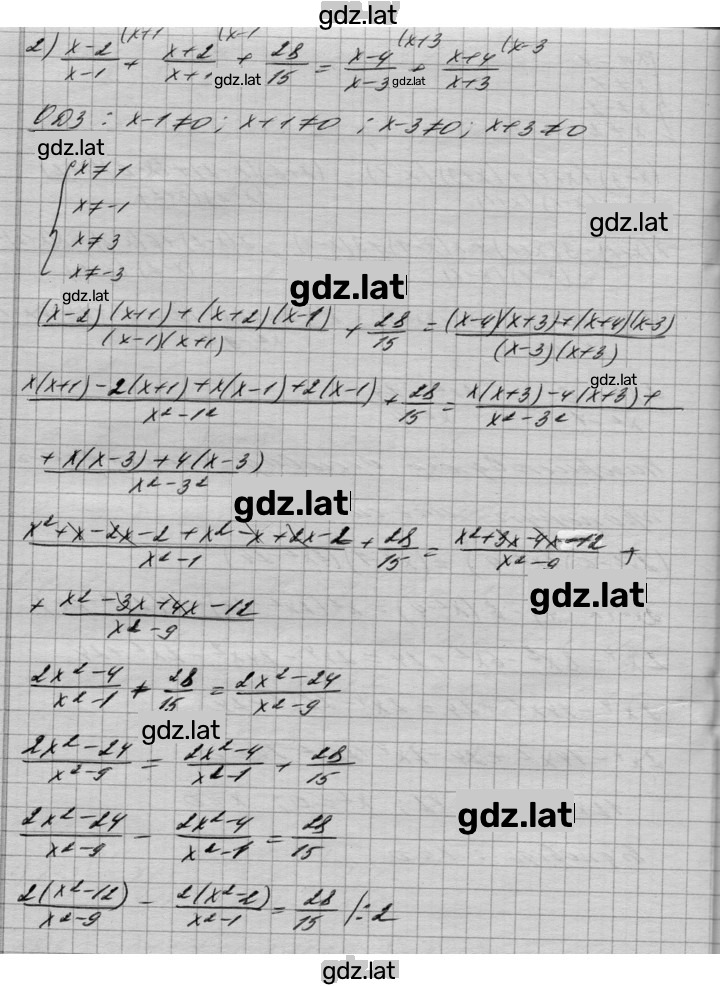 gdz.lat
2) \frac{x-2}{x-1}^{(x+1} + \frac{x+2}{x+1}^{(x-1} + \frac{28}{15} = \frac{x-4}{x-3}^{(x+3} + \frac{x+4}{x+3}^{(x-3}
gdz.lat gdz.lat
ОДЗ: x-1≠0; x+1≠0; x-3≠0; x+3≠0
gdz.lat
{ x≠1
x≠-1
gdz.lat
x≠3
x≠-3
gdz.lat
gdz.lat
\frac{(x-2)(x+1)+(x+2)(x-1)}{(x-1)(x+1)} + \frac{28}{15} = \frac{(x-4)(x+3)+(x+4)(x-3)}{(x-3)(x+3)}
gdz.lat
\frac{x(x+1)-2(x+1)+x(x-1)+2(x-1)}{x²-1²} + \frac{28}{15} = \frac{x(x+3)-4(x+3)+}{x²-3²}
\frac{+x(x-3)+4(x-3)}{x²-3²}
gdz.lat
\frac{x²+x-2x-2+x²-x+2x-2}{x²-1} + \frac{28}{15} = \frac{x²+3x-4x-12}{x²-9} +
+ \frac{x²-3x+4x-12}{x²-9}
gdz.lat
\frac{2x²-4}{x²-1} + \frac{28}{15} = \frac{2x²-24}{x²-9}
gdz.lat
\frac{2x²-24}{x²-9} = \frac{2x²-4}{x²-1} + \frac{28}{15}
gdz.lat
\frac{2x²-24}{x²-9} - \frac{2x²-4}{x²-1} = \frac{28}{15}
\frac{2(x²-12)}{x²-9} - \frac{2(x²-2)}{x²-1} = \frac{28}{15} /:2
gdz.lat